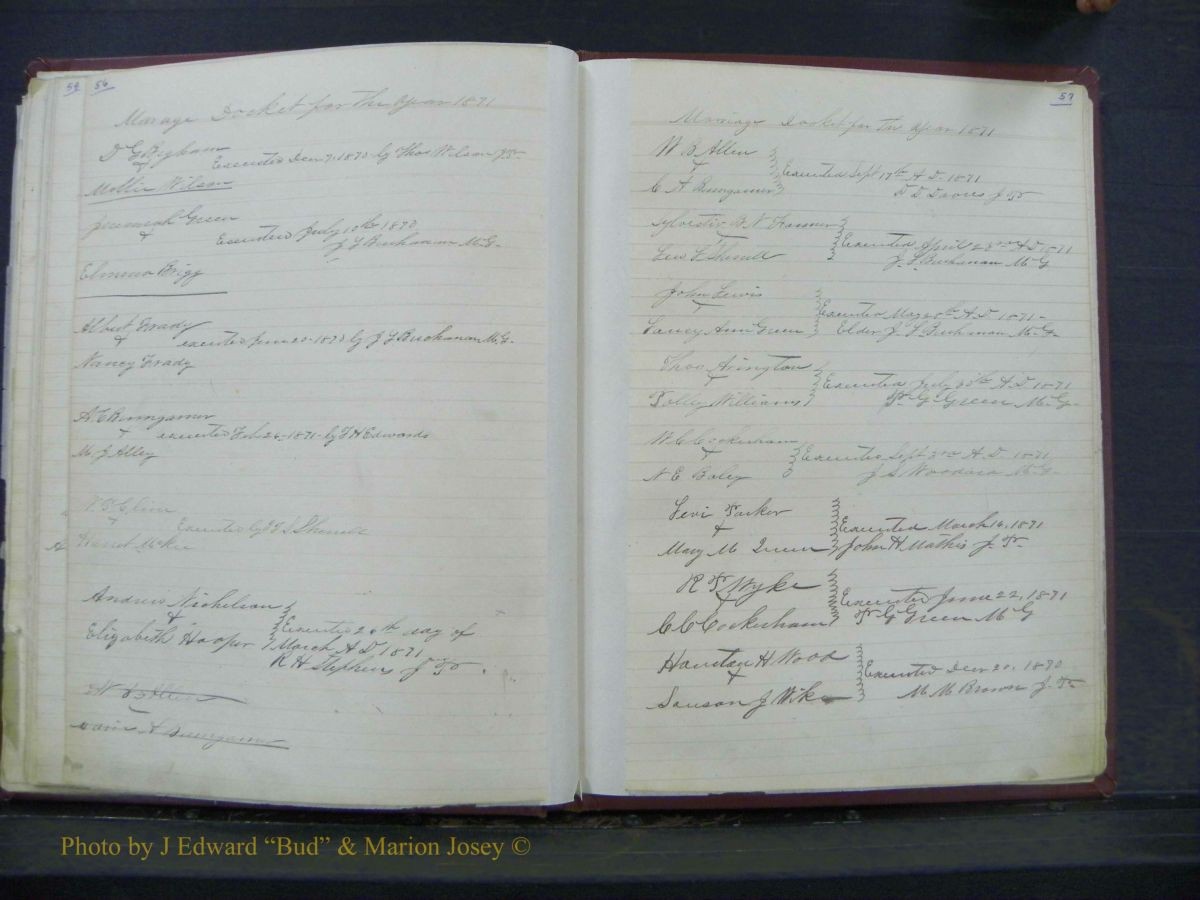 54 56
Marage Docket for the year 1871
D G Bigham
&
Executed Decr 7 1870 by Thos Wilson J P
Mollie Wilson
Jeremiah Green
&
Executed July 10th 1870
J L Buchanan M.G.
Elmina Brigg
Albert Frady
&
executed June 20 1870 by J L Buchanan M.G.
Nancy Frady
A E Bumgarner
&
executed Feb 26 1871 by H Edwards
M J Alley
&
Executed by Sherrill
McKee
Andrew Nichelson
&
Elizabeth Hooper
Executed 20th day of
March A D 1871
R H Stephens J P
W B Allen
&
A Bumgarner
57
Marriage Docket for the year 1871
W B Allen
&
C A Bumgarner
Executed Sept 17th A D. 1871
D D Davies J P
Sylvester B N
&
L Sherrill
Executed April 23rd A D 1871
J. L Buchanan M G
John Lewis
&
Ann Green
Executed May A D 1871
Elder J L Buchanan M.G.
Thos Arington
&
Polly Williams
Executed July 30th A D 1871
G Green M.G.
W C Cockerham
&
N E Boley
Executed Sept 3rd A D. 1871
J S Woodard M.G.
Levi Parker
&
Mary M Queen
Executed March 16, 1871
John H Mathis J. P.
R P Wyke
&
C C Cockerham
Executed June 22, 1871
G Green M G
H Wood
&
J Wike
Executed Decr 20, 1870
M M Brown J. P.
Photo by J Edward “Bud” & Marion Josey ©